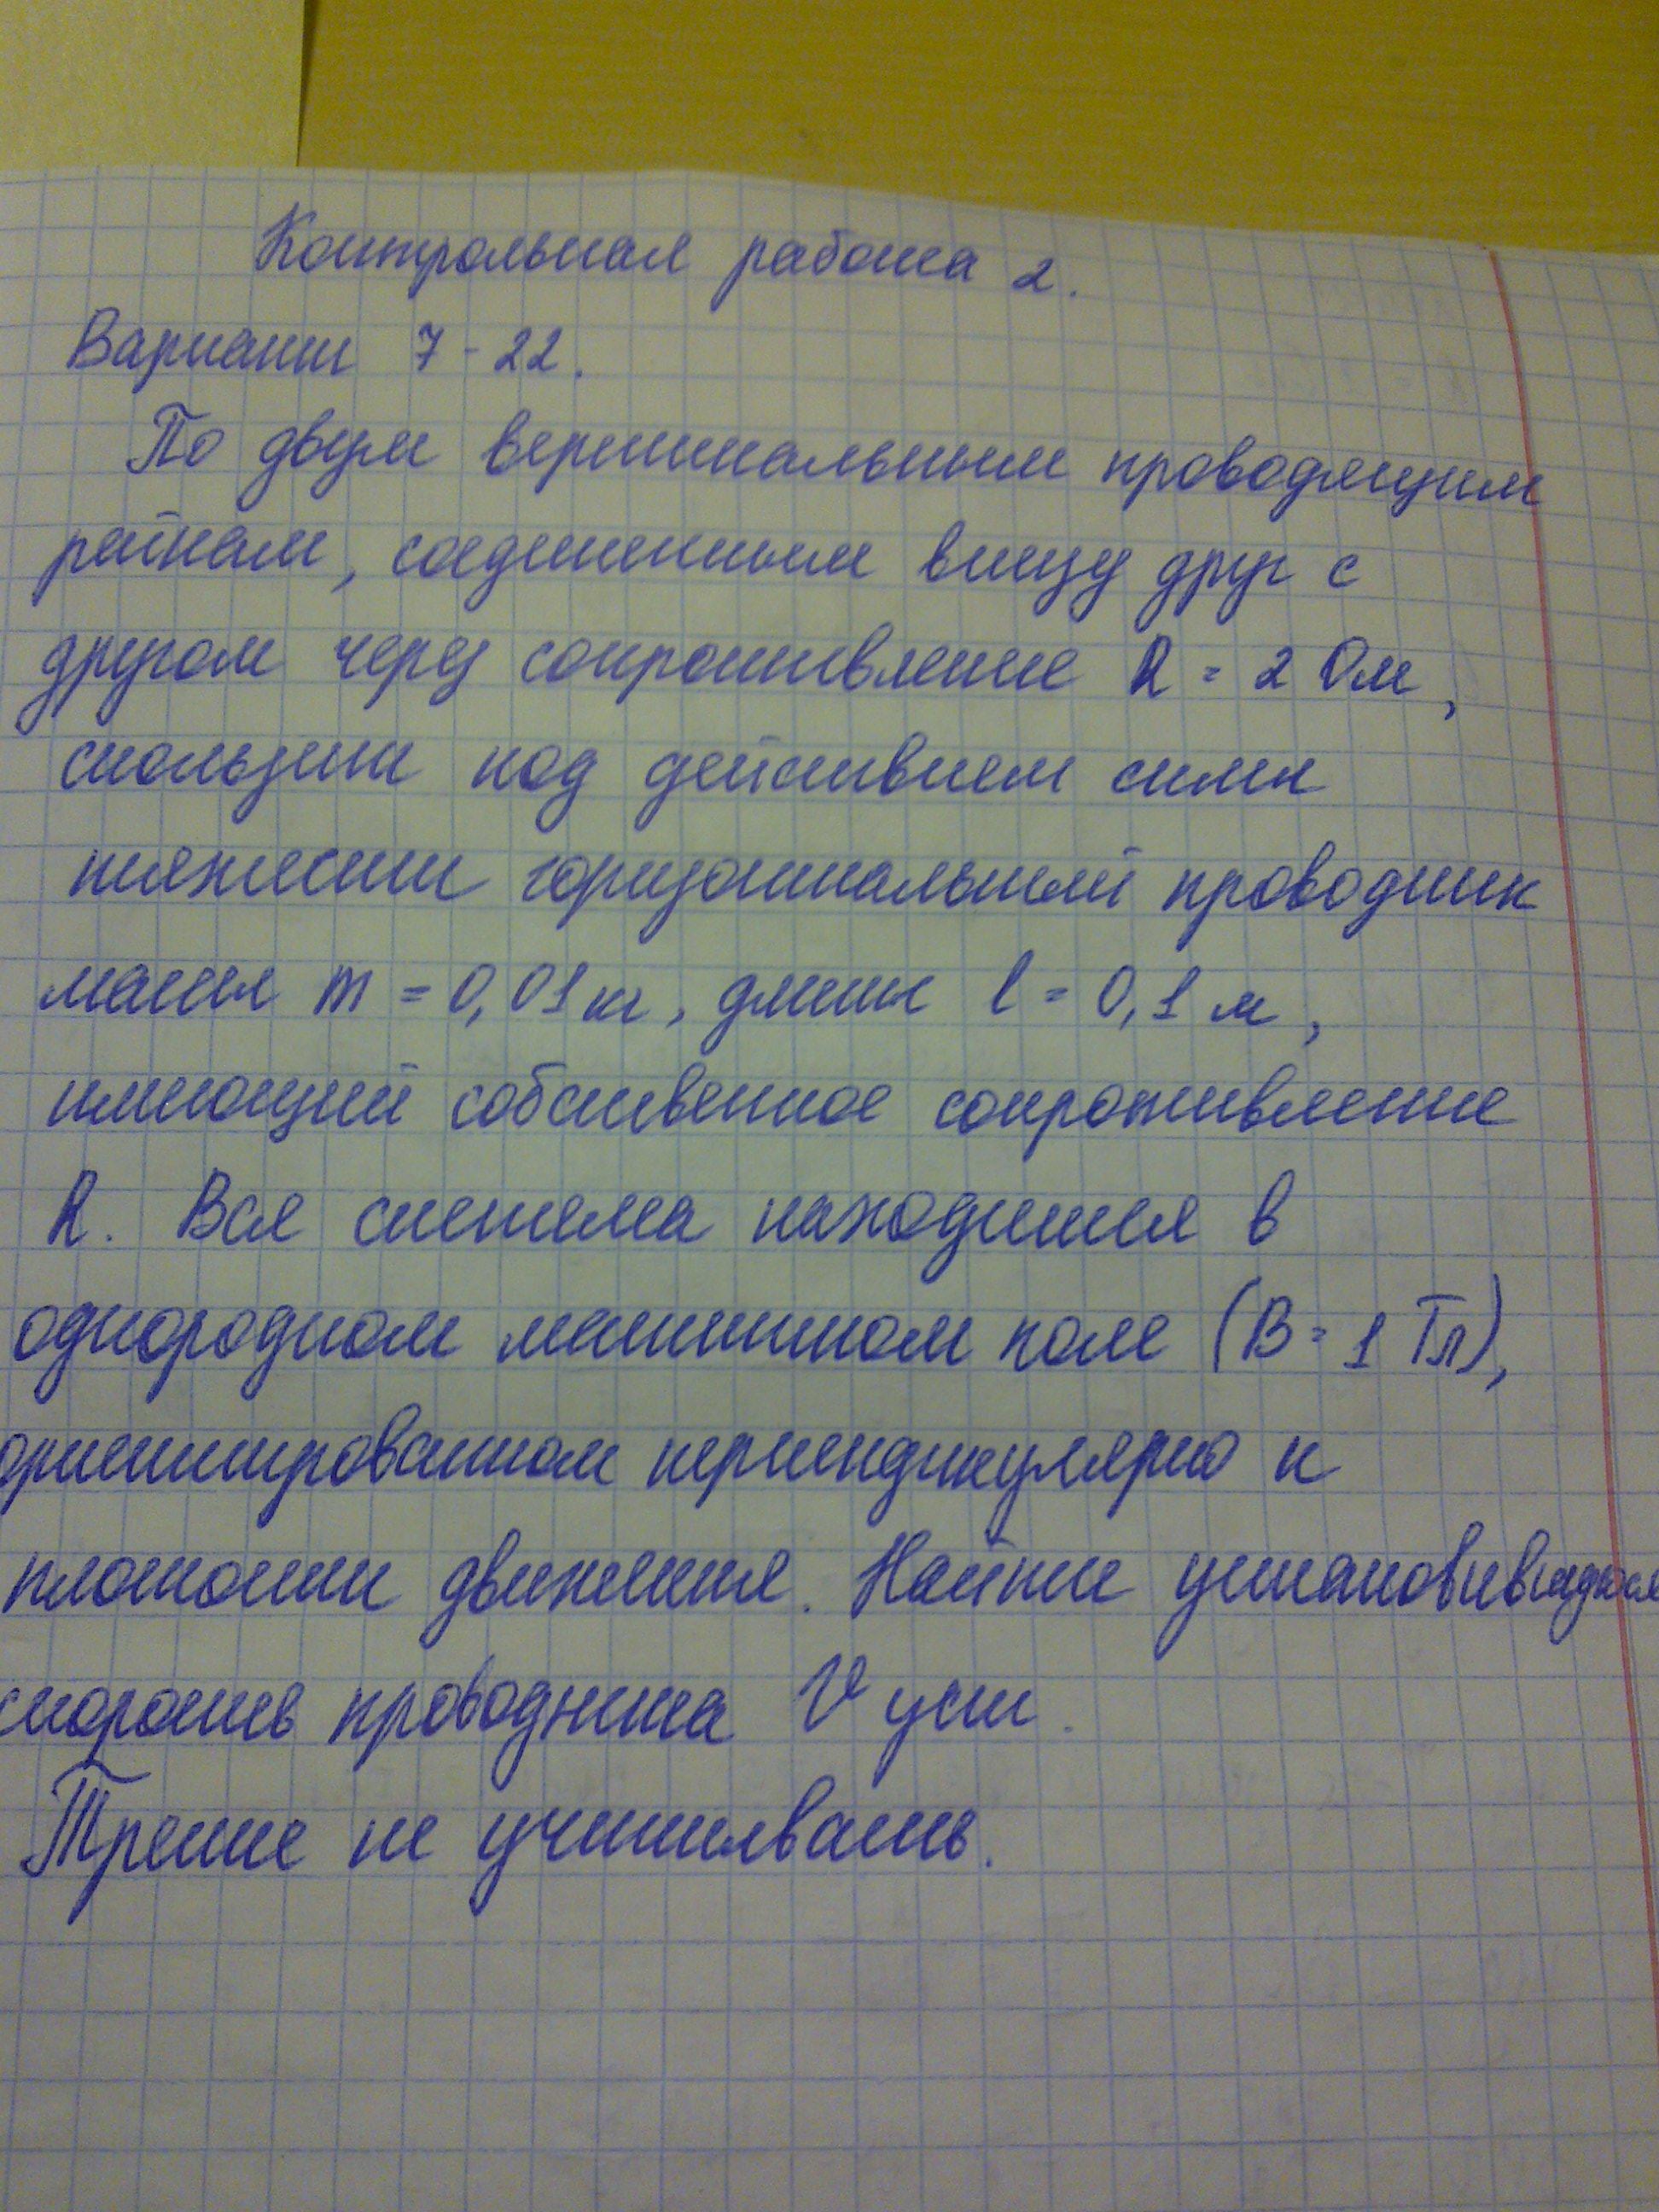 Контрольная работа 2.
Вариант 7-22.
По двум вертикальным проводящим
рейкам, соединенным внизу друг с
другом через сопротивление R = 2 Ом,
скользит под действием силы
тяжести горизонтальный проводник
массы m = 0,01 кг, длины l = 0,1 м,
имеющий собственное сопротивление
R. Вся система находится в
однородном магнитном поле (B = 1 Тл),
ориентированном перпендикулярно к
плоскости движения. Найти установившуюся
скорость проводника V уст.
Трение не учитывать.